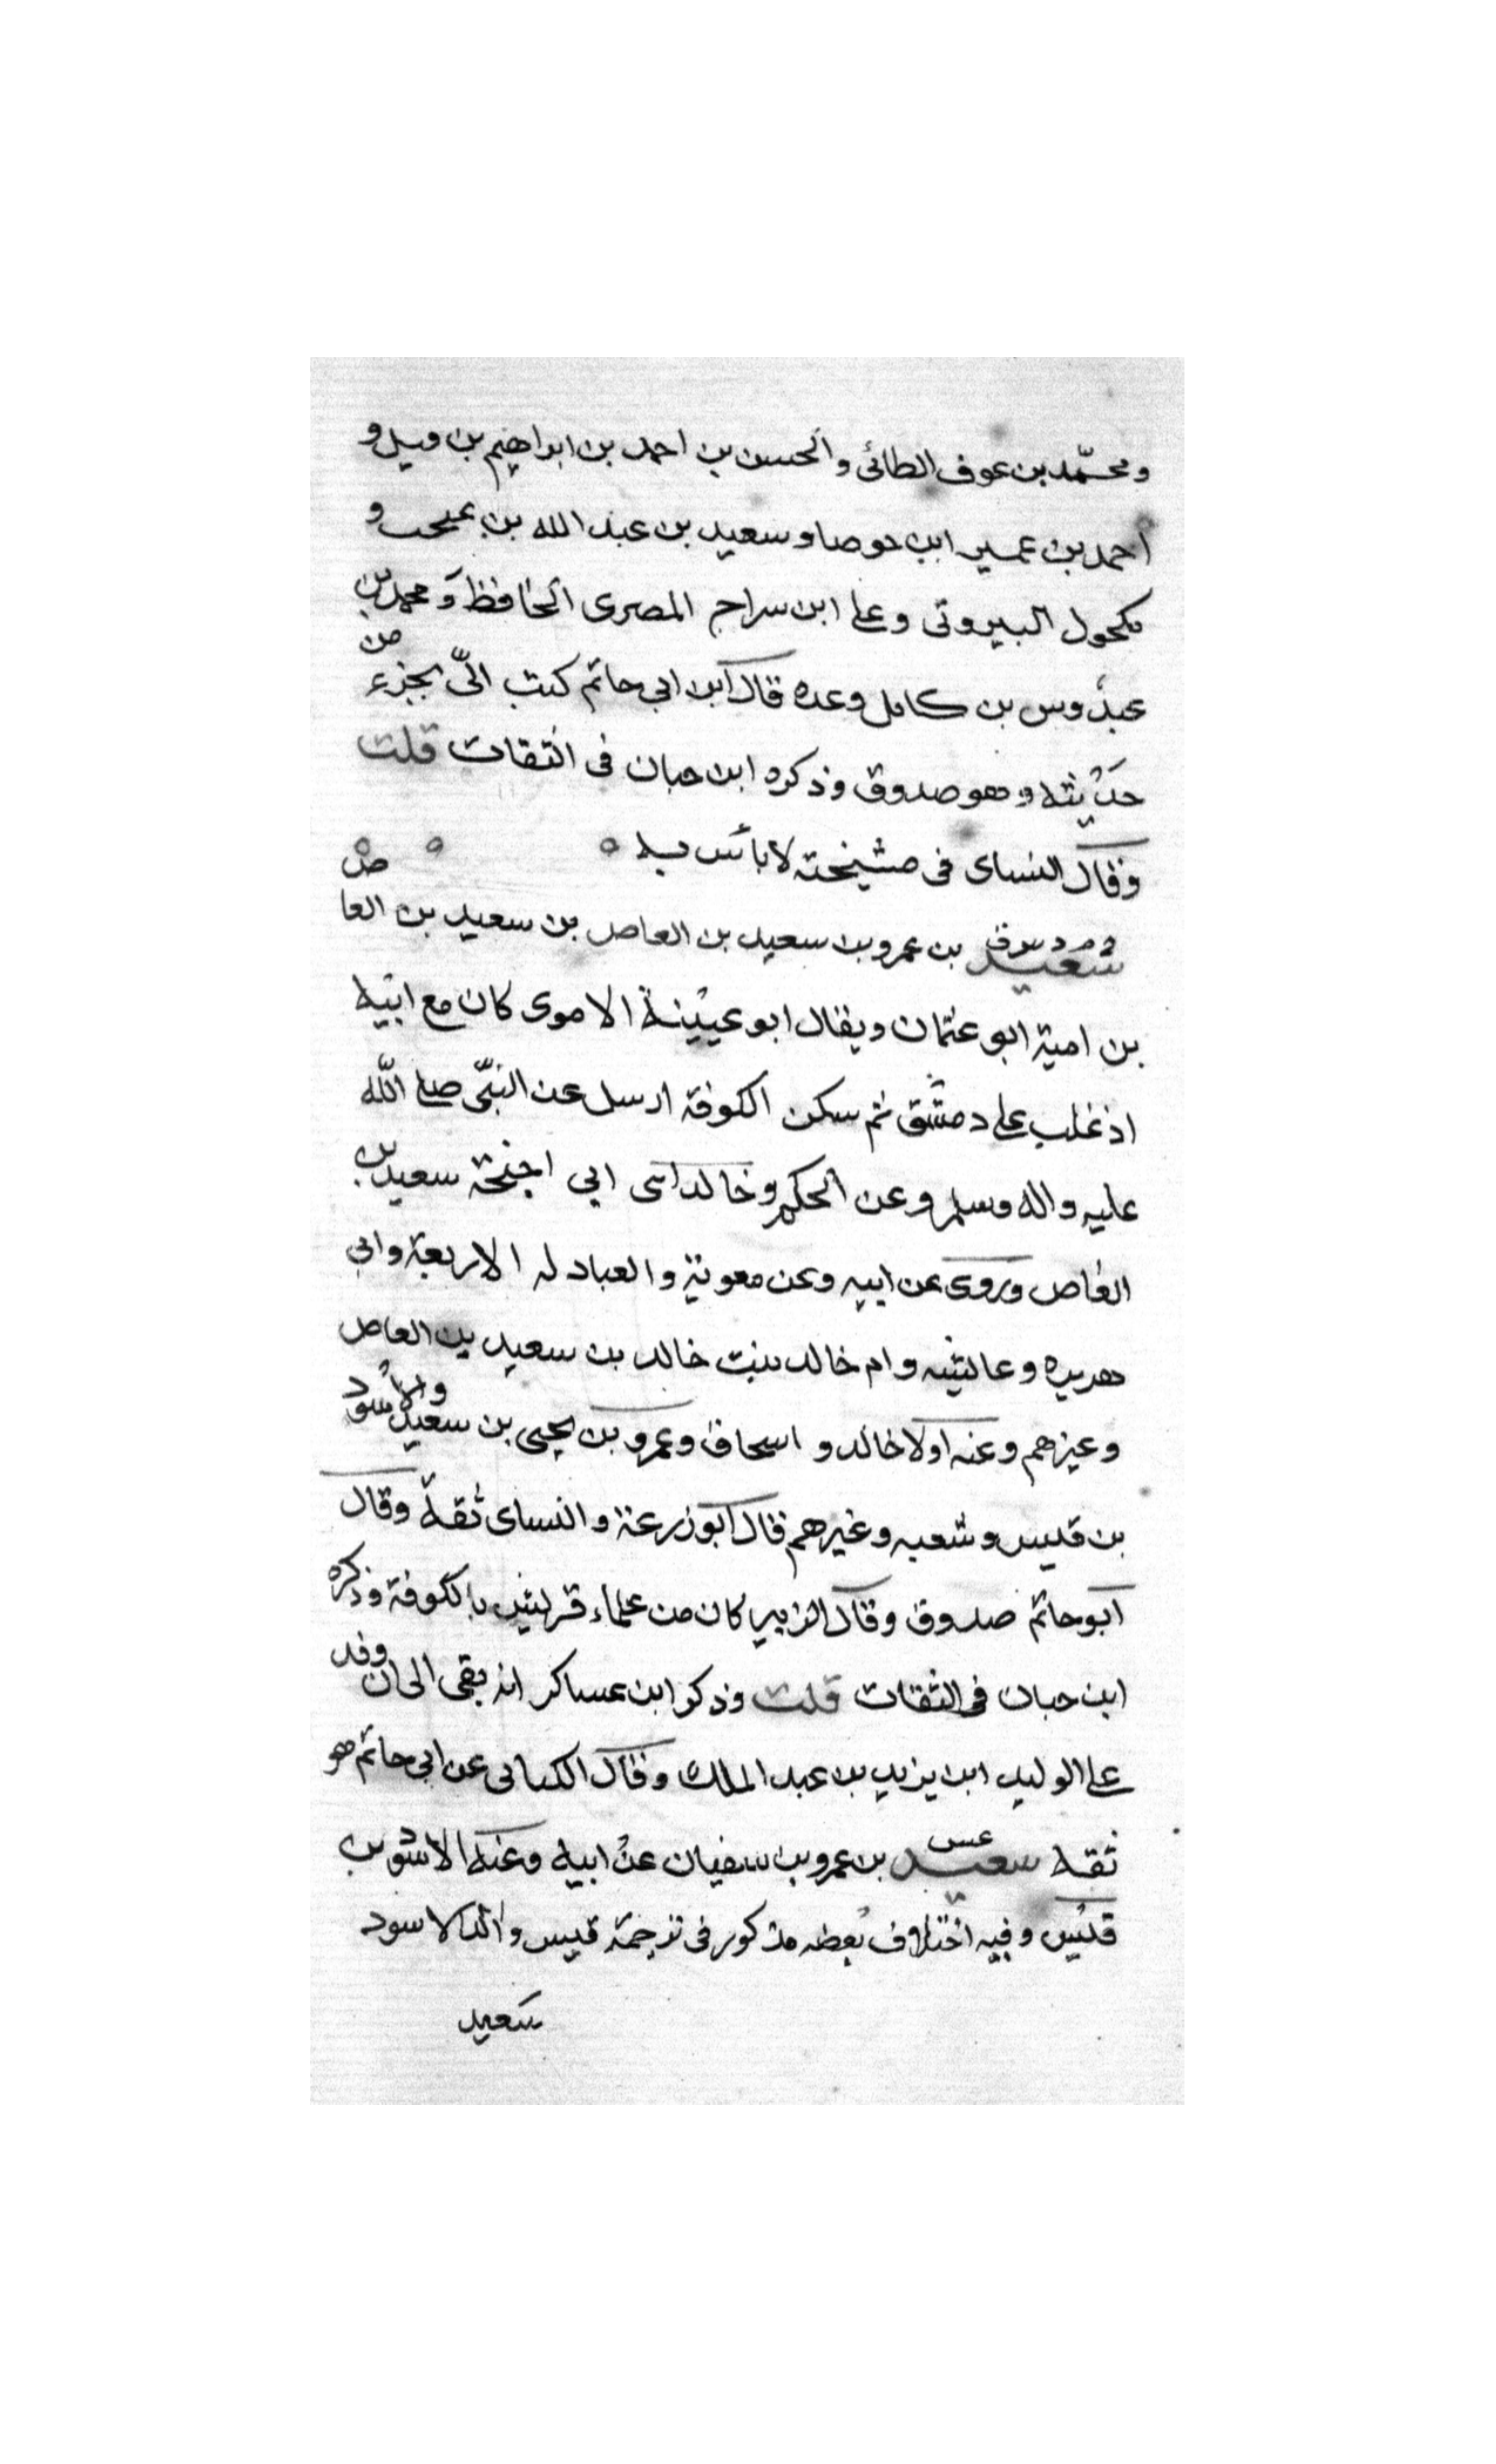 ومحمّد بن عوف الطائى والحسن بن احمد بن ابراهيم بن فيل و
احمد بن عمير ابن حوصا وسعيد بن عبد الله بن عجب و
مكحول البيروتى وعلى ابن سراج المصرى الحافظ ومحمد بن
عبدوس بن كامل وعده قال ابن ابي حاتم كتب الىّ بجزء من
حديثه وهو صدوق وذكره ابن حبان فى الثقات قلت
وقال النساى فى مشيخته لا بأس به
سعيد بن عمرو بن سعيد بن العاص بن سعيد بن العاص
بن امية ابو عثمان ويقال ابو عيينة الاموى كان مع ابيه
اذ غلب على دمشق ثم سكن الكوفة ارسل عن النبّى صلى الله
عليه واله وسلم وعن الحكم وخالد ابنى ابي احيحة سعيد بن
العاص وروى عن ابيه وعن معوية والعبادله الاربعة وابي
هريره وعائشه وام خالد بنت خالد بن سعيد بن العاص
وغيرهم وعنه اولا خالد و اسحاق وعمرو بن يحيى بن سعيد والاسود
بن قيس وشعبه وغيرهم قال ابو زرعة والنساى ثقة وقال
ابو حاتم صدوق وقال الزبير كان من علماء قريش بالكوفة وذكره
ابن حبان فى الثقات قلت وذكر ابن عساكر انه بقى الى ان وفد
على الوليد ابن يزيد بن عبد الملك وقال الكنانى عن ابي حاتم هو
ثقه سعيد بن عمرو بن سفيان عن ابيه وعنه الاسود بن
قيس وفيه اختلاف بعضه مذكور فى ترجمة قيس والد الاسود
سعيد